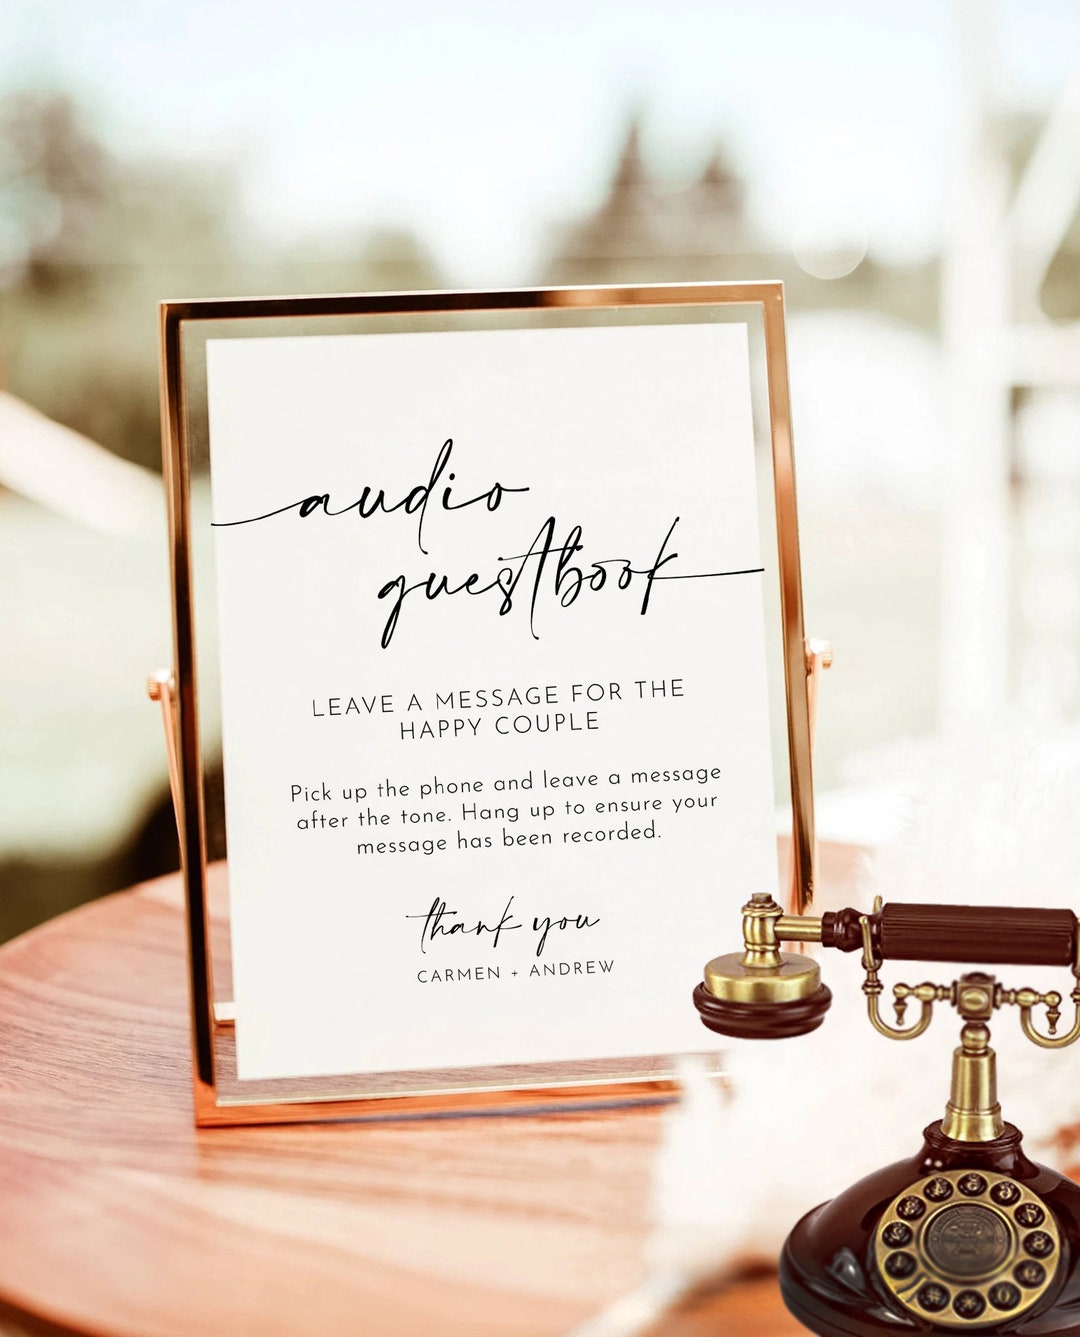 audio
guestbook
LEAVE A MESSAGE FOR THE
HAPPY COUPLE
Pick up the phone and leave a message
after the tone. Hang up to ensure your
message has been recorded.
thank you
CARMEN + ANDREW